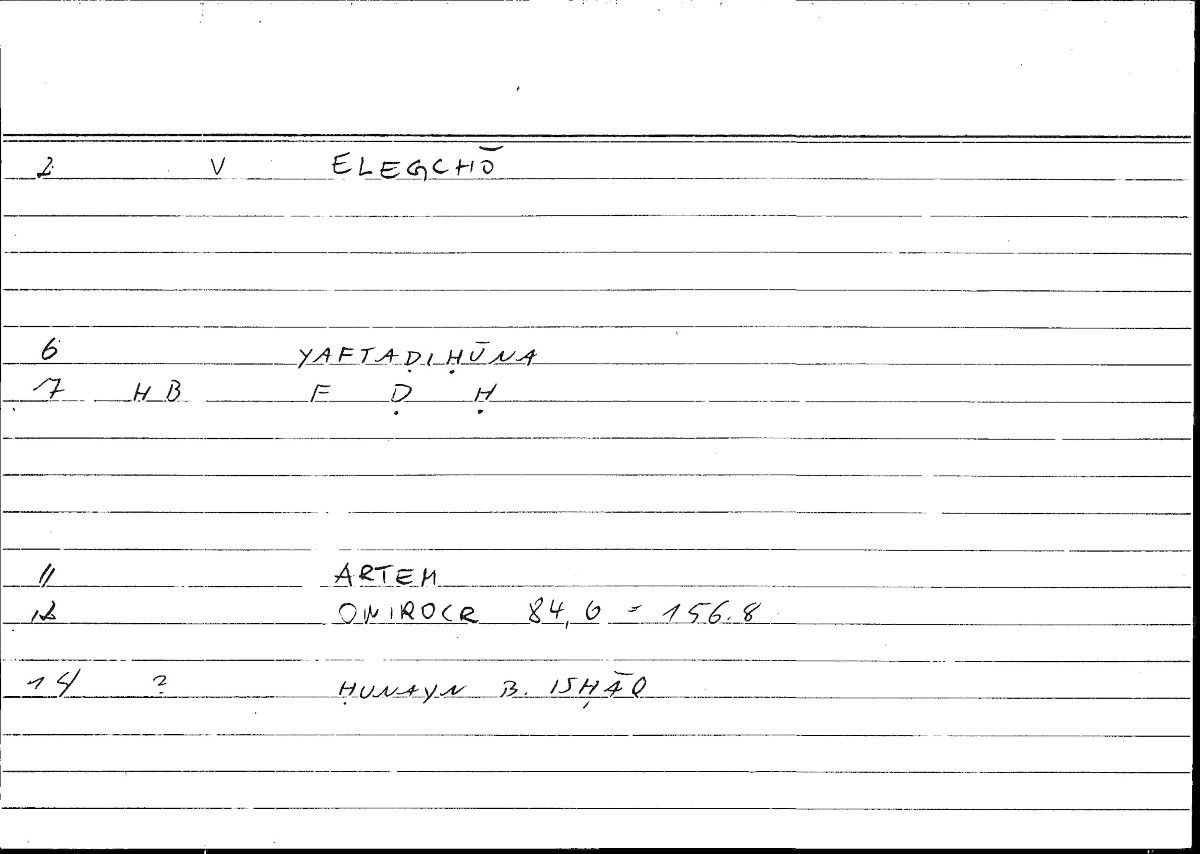 2 V ELEGCHŌ
6 YAFTAḌIḤŪNA
7 HB F Ḍ Ḥ
11 ARTEM
12 ONIROCR 84,6 = 156.8
14 ? ḤUNAYN B. ISḤĀQ